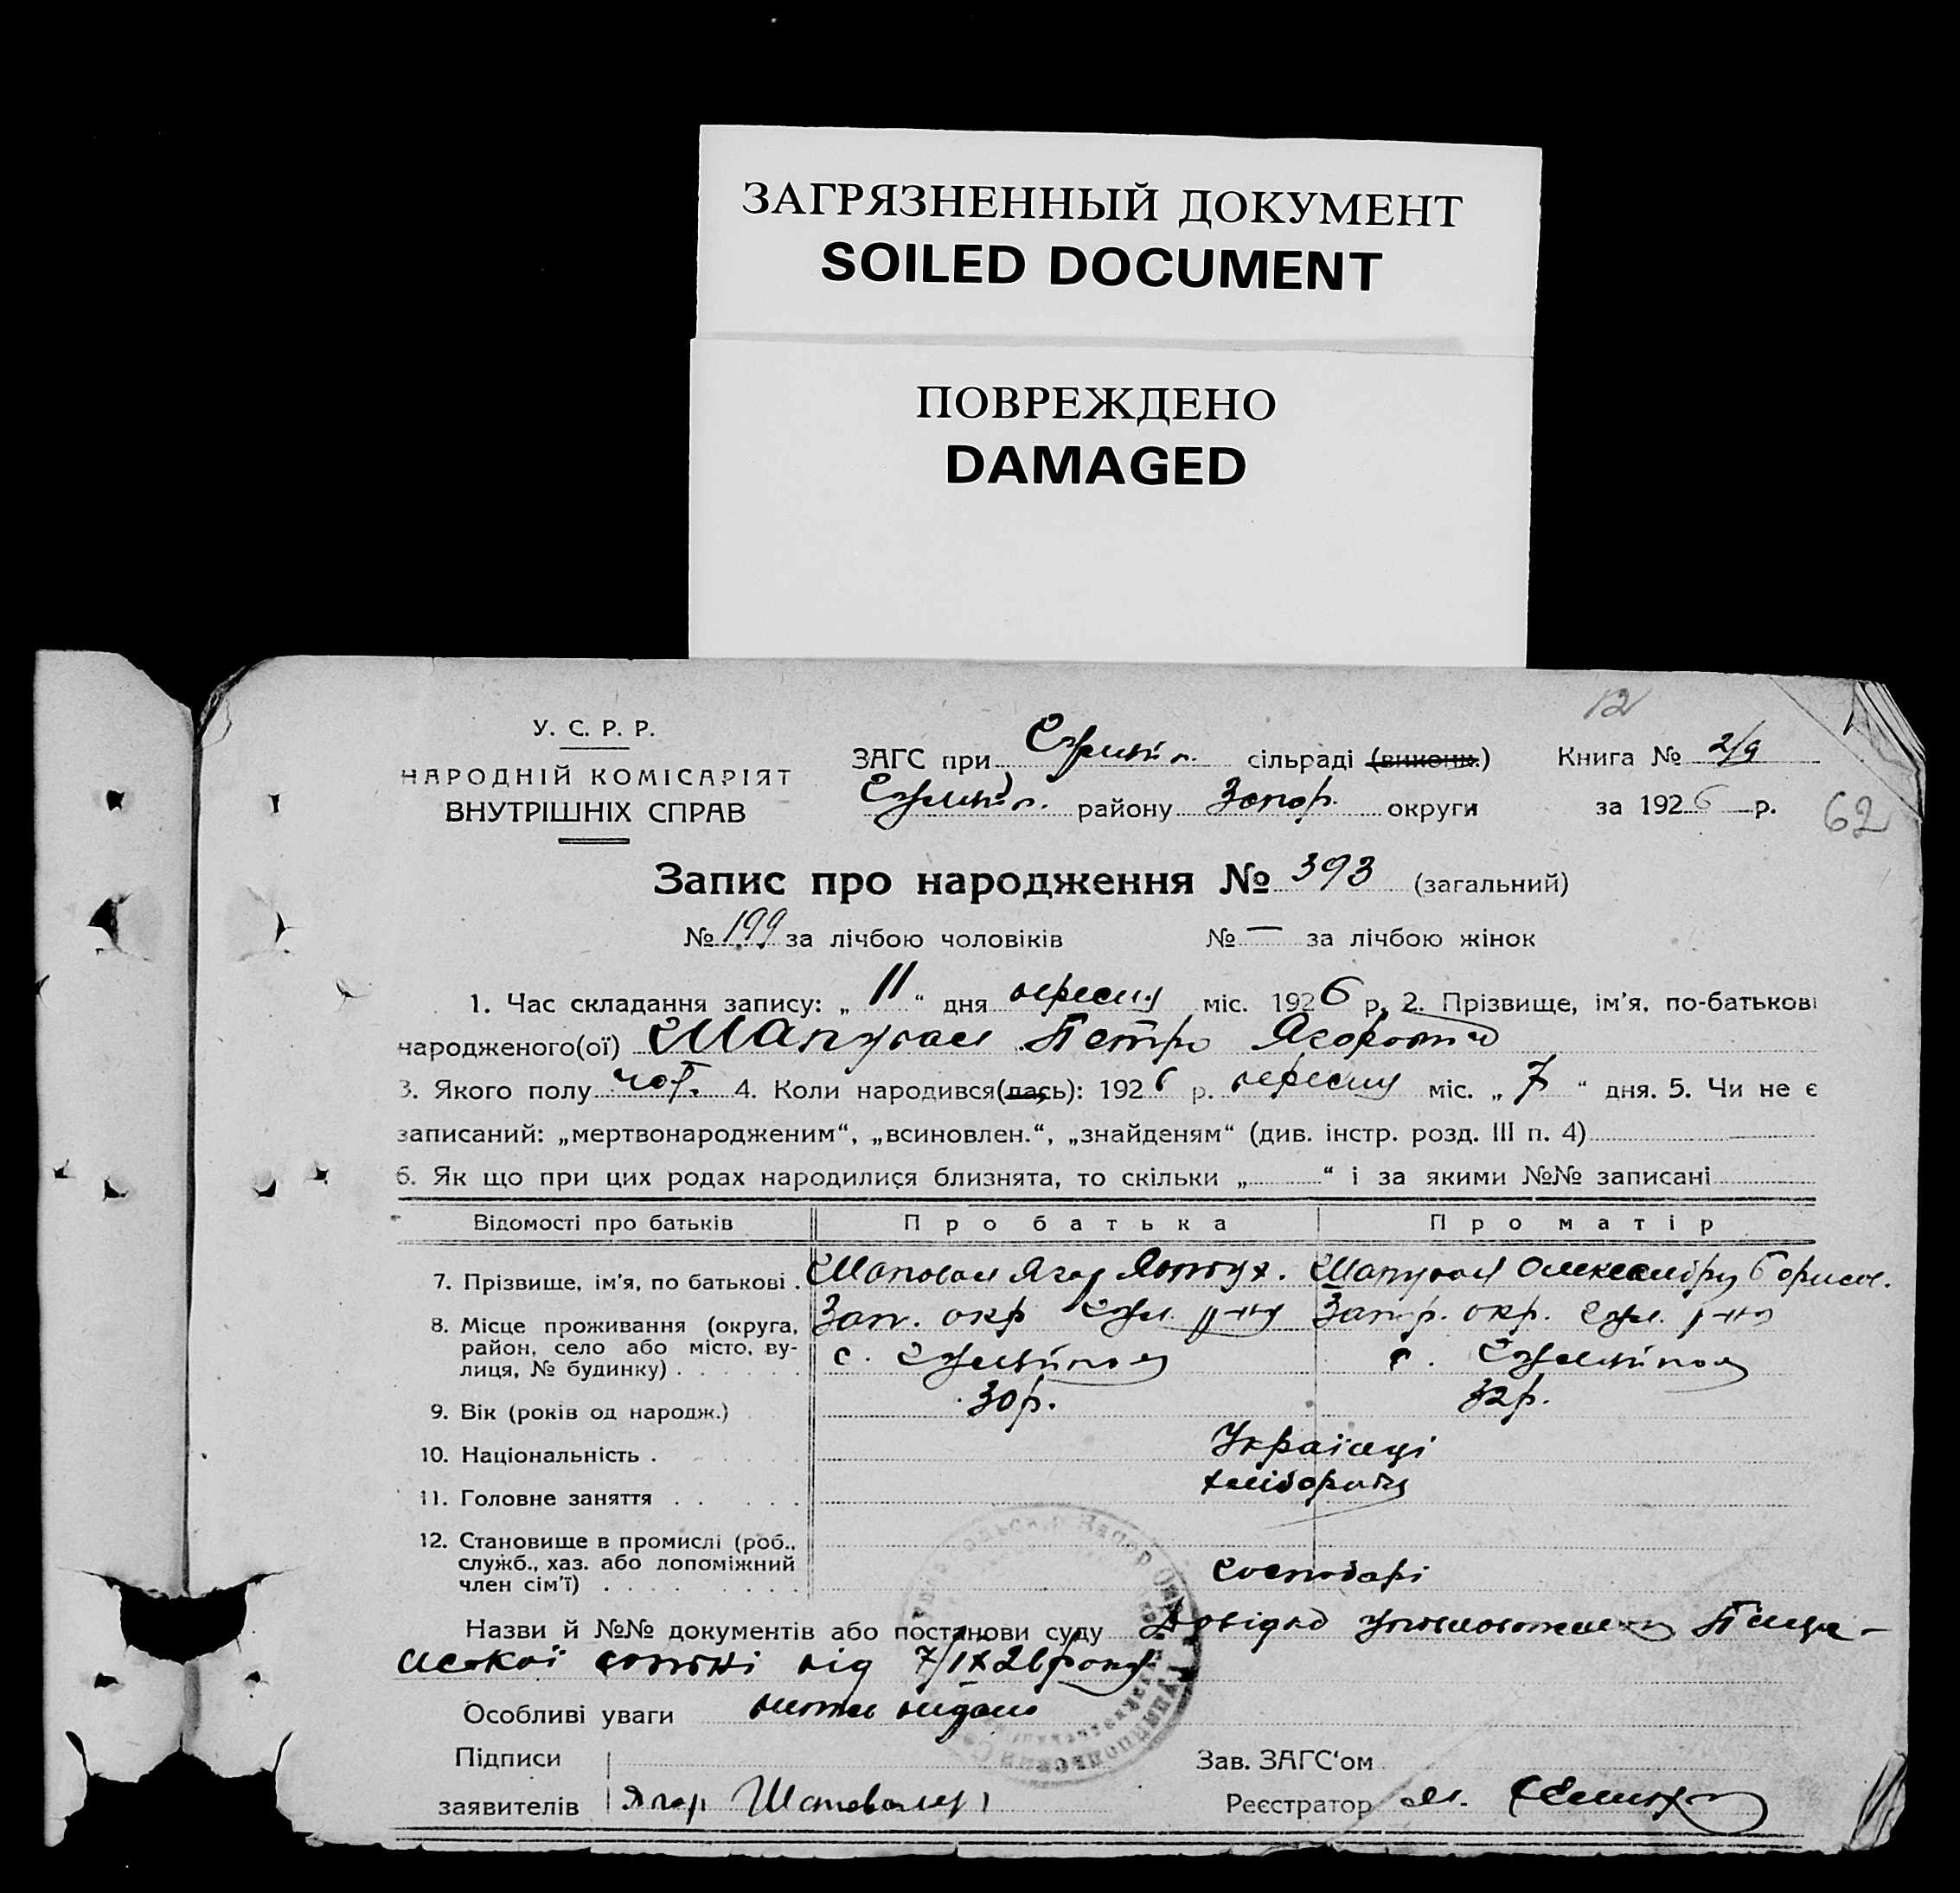 ЗАГРЯЗНЕННЫЙ ДОКУМЕНТ
SOILED DOCUMENT
ПОВРЕЖДЕНО
DAMAGED
12
У. С. Р. Р.
НАРОДНІЙ КОМІСАРІЯТ
ВНУТРІШНІХ СПРАВ
ЗАГС при сільраді (виконк.) Книга № 2/9
району Запор. округи за 1926 р.
62
Запис про народження № 393 (загальний)
№ 199 за лічбою чоловіків № — за лічбою жінок
1. Час складання запису: „ 11 “ дня вересня міс. 1926 р. 2. Прізвище, ім'я, по-батькові
народженого(ої) Шаповал Петро Ягорович
3. Якого полу чол. 4. Коли народився(лась): 1926 р. вересня міс. „ 7 “ дня. 5. Чи не є
записаний: „мертвонародженим“, „всиновлен.“, „знайденям“ (див. інстр. розд. III п. 4)
6. Як що при цих родах народилися близнята, то скільки „ “ і за якими №№ записані
Відомості про батьків Про батька Про матір
7. Прізвище, ім'я, по батькові . Шаповал Ягор Шаповал Олександра Борисов.
8. Місце проживання (округа, район, село або місто, вулиця, № будинку) . Зап. окр р-ну с. Запор. окр. р-ну с.
9. Вік (років од народж.) 30 р. 32 р.
10. Національність . Українці
11. Головне заняття . . хлібороби
12. Становище в промислі (роб., служб., хаз. або допоміжний член сім'ї) . господарі
Назви й №№ документів або постанови суду Довідка уповноваженого
сотні від 7/IX 26 року
Особливі уваги витяг видано
Підписи Зав. ЗАГС‘ом
заявителів Ягор Шаповал Реєстратор